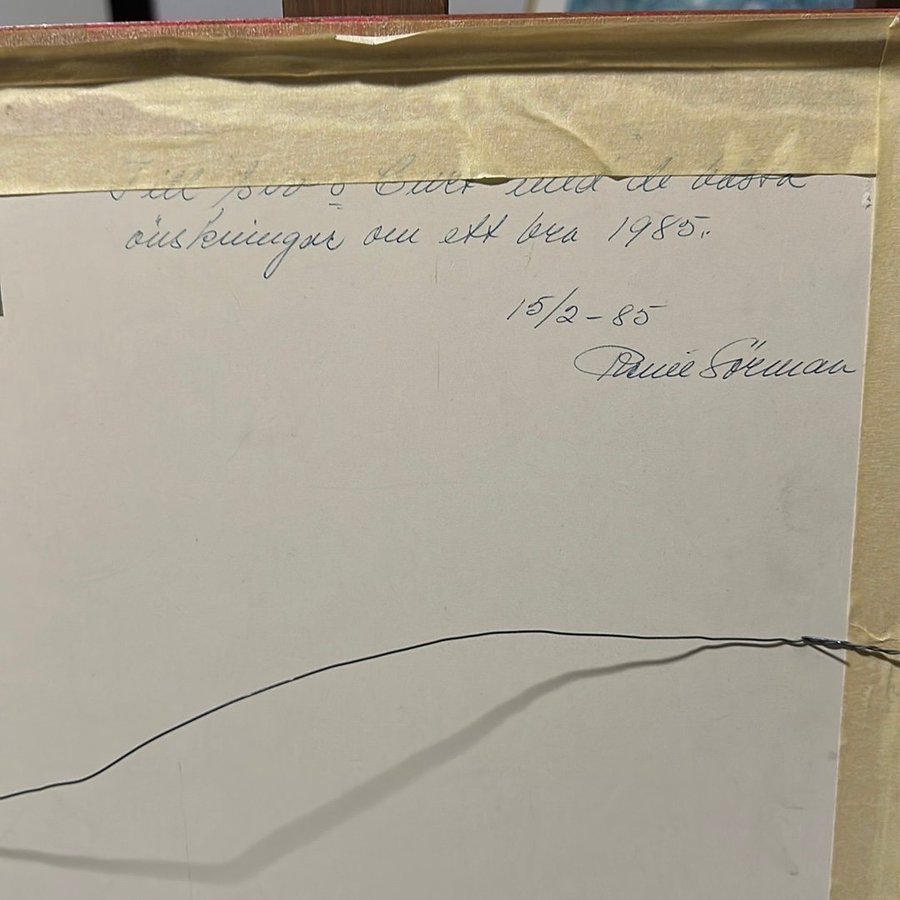 Till Siv o Curt med de bästa
önskningar om ett bra 1985.
15/2-85
Sörman